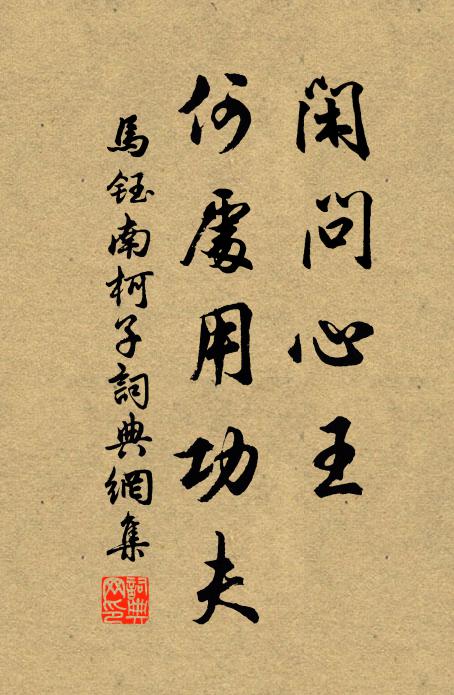 閑問心王
何處用功夫
馬鈺南柯子詞典網集
詞典
网印